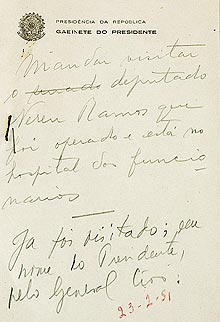 PRESIDÊNCIA DA REPÚBLICA
GABINETE DO PRESIDENTE
Mandar visitar
o deputado
Nereu Ramos que
foi operado e está no
hospital dos funcio
narios
Já foi visitado; em
nome do Presidente,
pelo General Ciro.
23-2-51